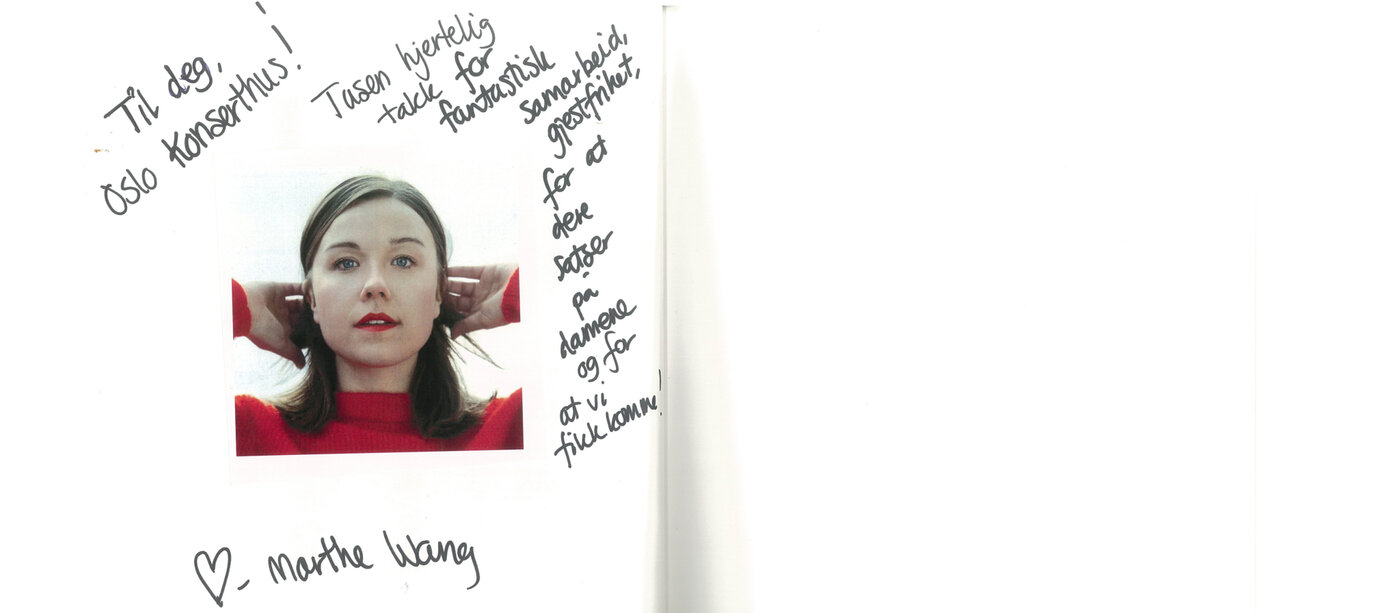 Til deg,
Oslo Konserthus!
Tusen hjertelig
takk for
fantastisk
samarbeid,
gjestfrihet,
for at
dere
satser
på
damene
og for
at vi
fikk komme!
♡ - Marthe Wang